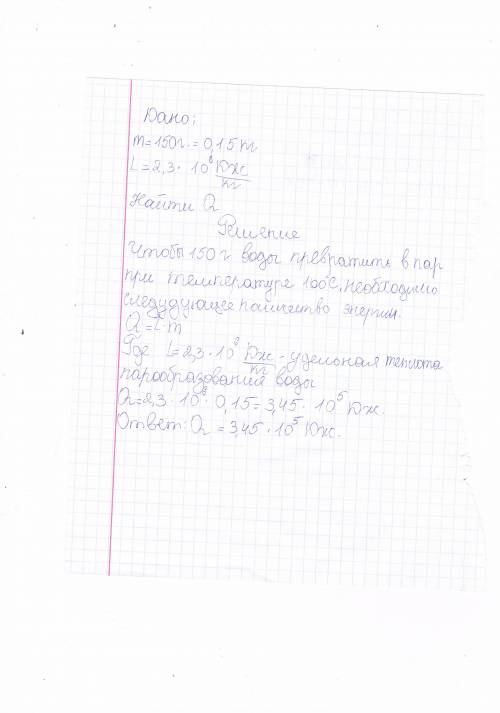 Дано:
m=150г.=0,15кг
L=2,3·10⁶ Дж/кг
Найти Q
Решение
Чтобы 150 г воды превратить в пар
при температуре 100°С, необходимо
следудующее количество энергии.
Q=L·m
Где L=2,3·10⁶ Дж/кг - удельная теплота
парообразования воды
Q=2,3·10⁶·0,15=3,45·10⁵ Дж.
Ответ: Q=3,45·10⁵ Дж.